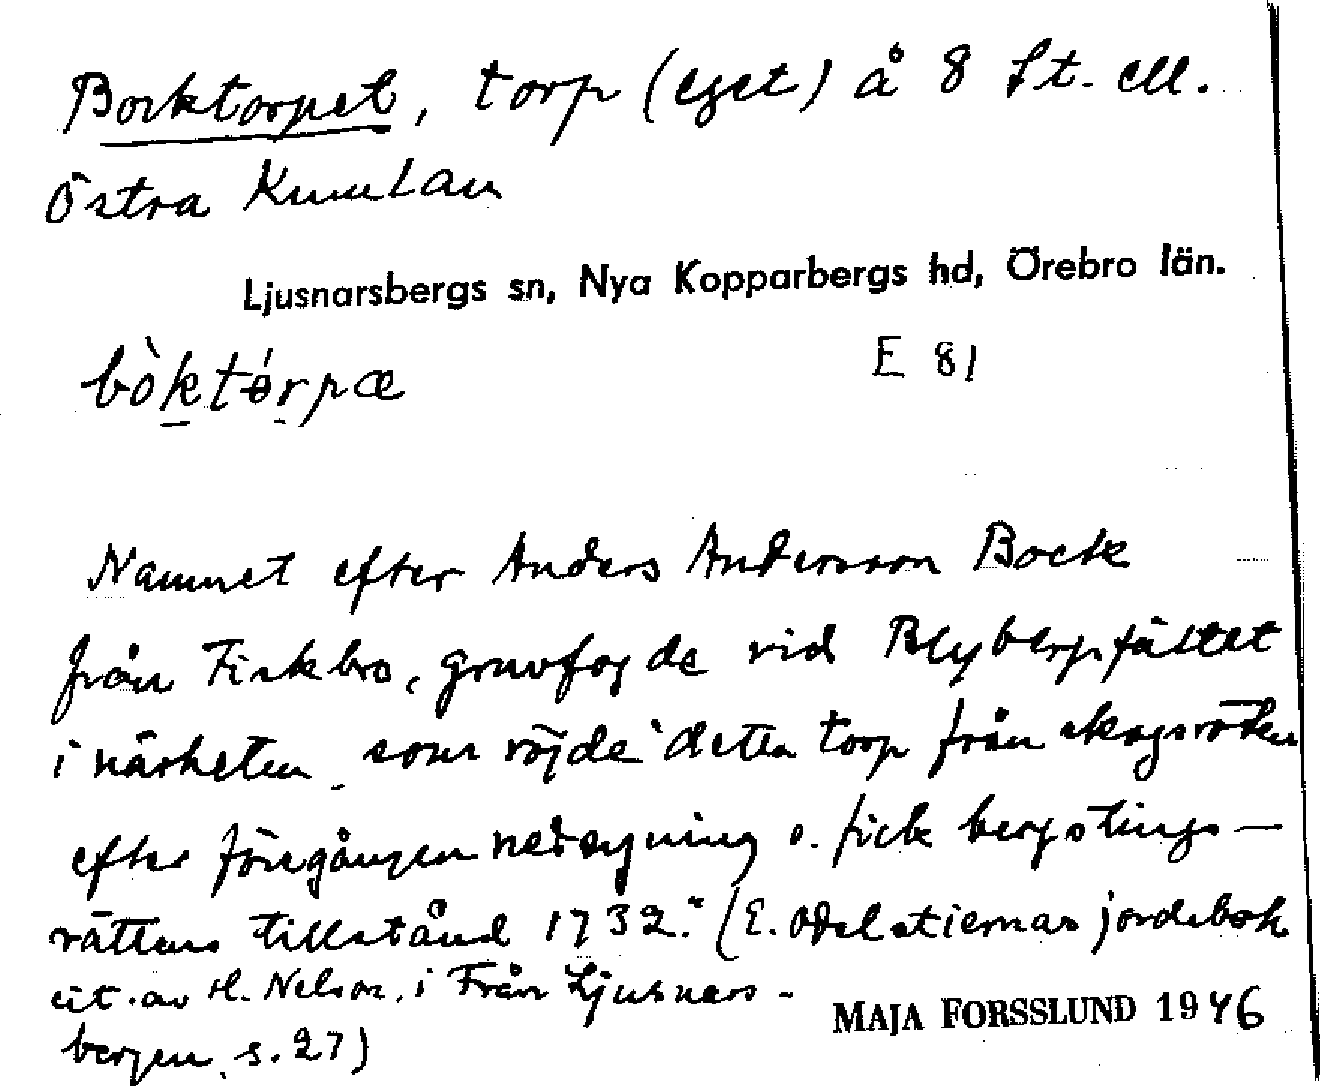 Bocktorpet, torp (eget) å 8 St. ell.
Östra Kumlan
Ljusnarsbergs sn, Nya Kopparbergs hd, Örebro län.
bòktórpæ
E 81
Namnet efter Anders Andersson Bock
från Fiskbro, gruvfogde vid Blybergsfältet
i närheten som röjde "detta torp från skogsröten
efter föregången nedsyning o. fick bergstings-
rättens tillstånd 1732." (E. Odelstiernas jordebok
cit. av H. Nelson, i Från Ljusnars-
bergen, s. 27)
MAJA FORSSLUND 1946